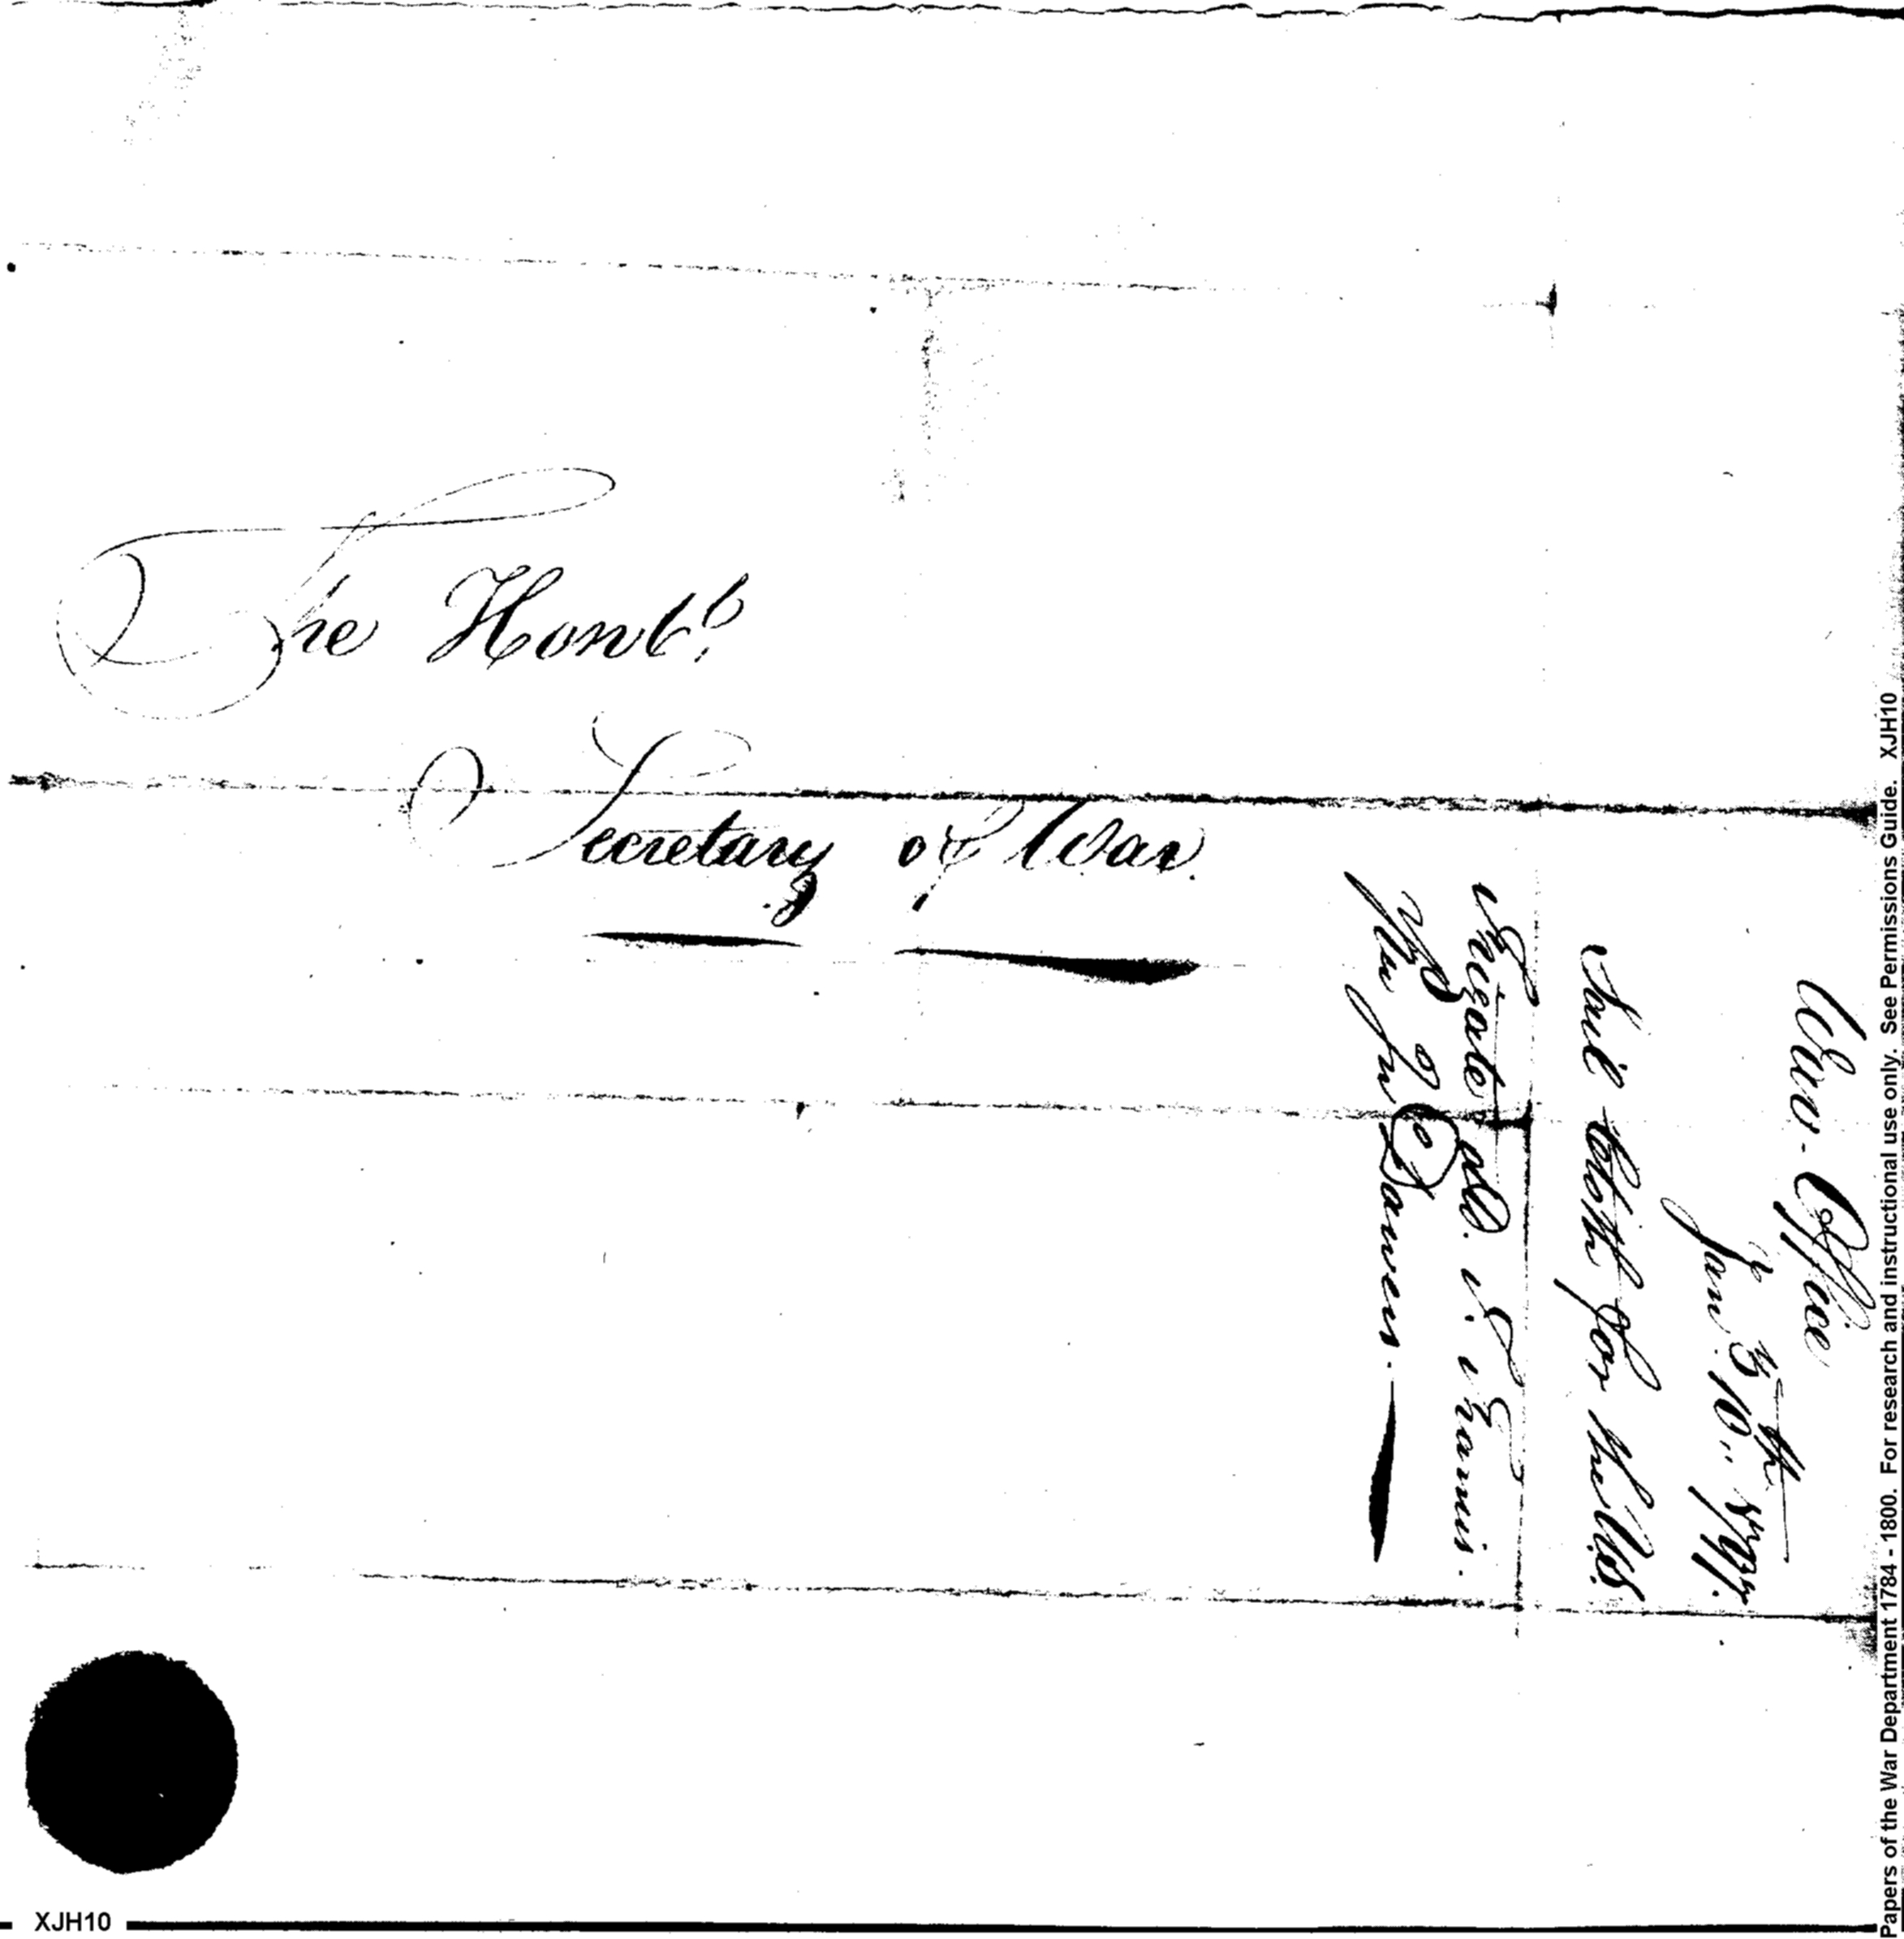 The Honble
Secretary of War.
War-Office
Jany 10th 1797.
Sail Cloth for the U.S.
Frigate Francis.
XJH10
Papers of the War Department 1784 - 1800. For research and instructional use only. See Permissions Guide. XJH10